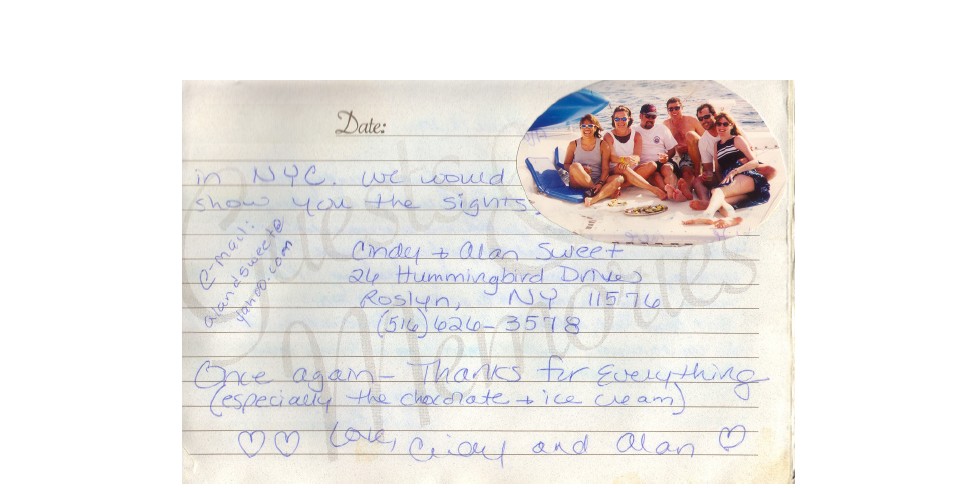 Date:
in NYC. We would
show you the sights.
e-mail:
alandsweet@
yahoo.com
Cindy + Alan Sweet
26 Hummingbird Drive
Roslyn, NY 11576
(516) 626-3578
Once again - Thanks for Everything
(especially the chocolate + ice cream)
Love, Cindy and Alan
Guests
Memories